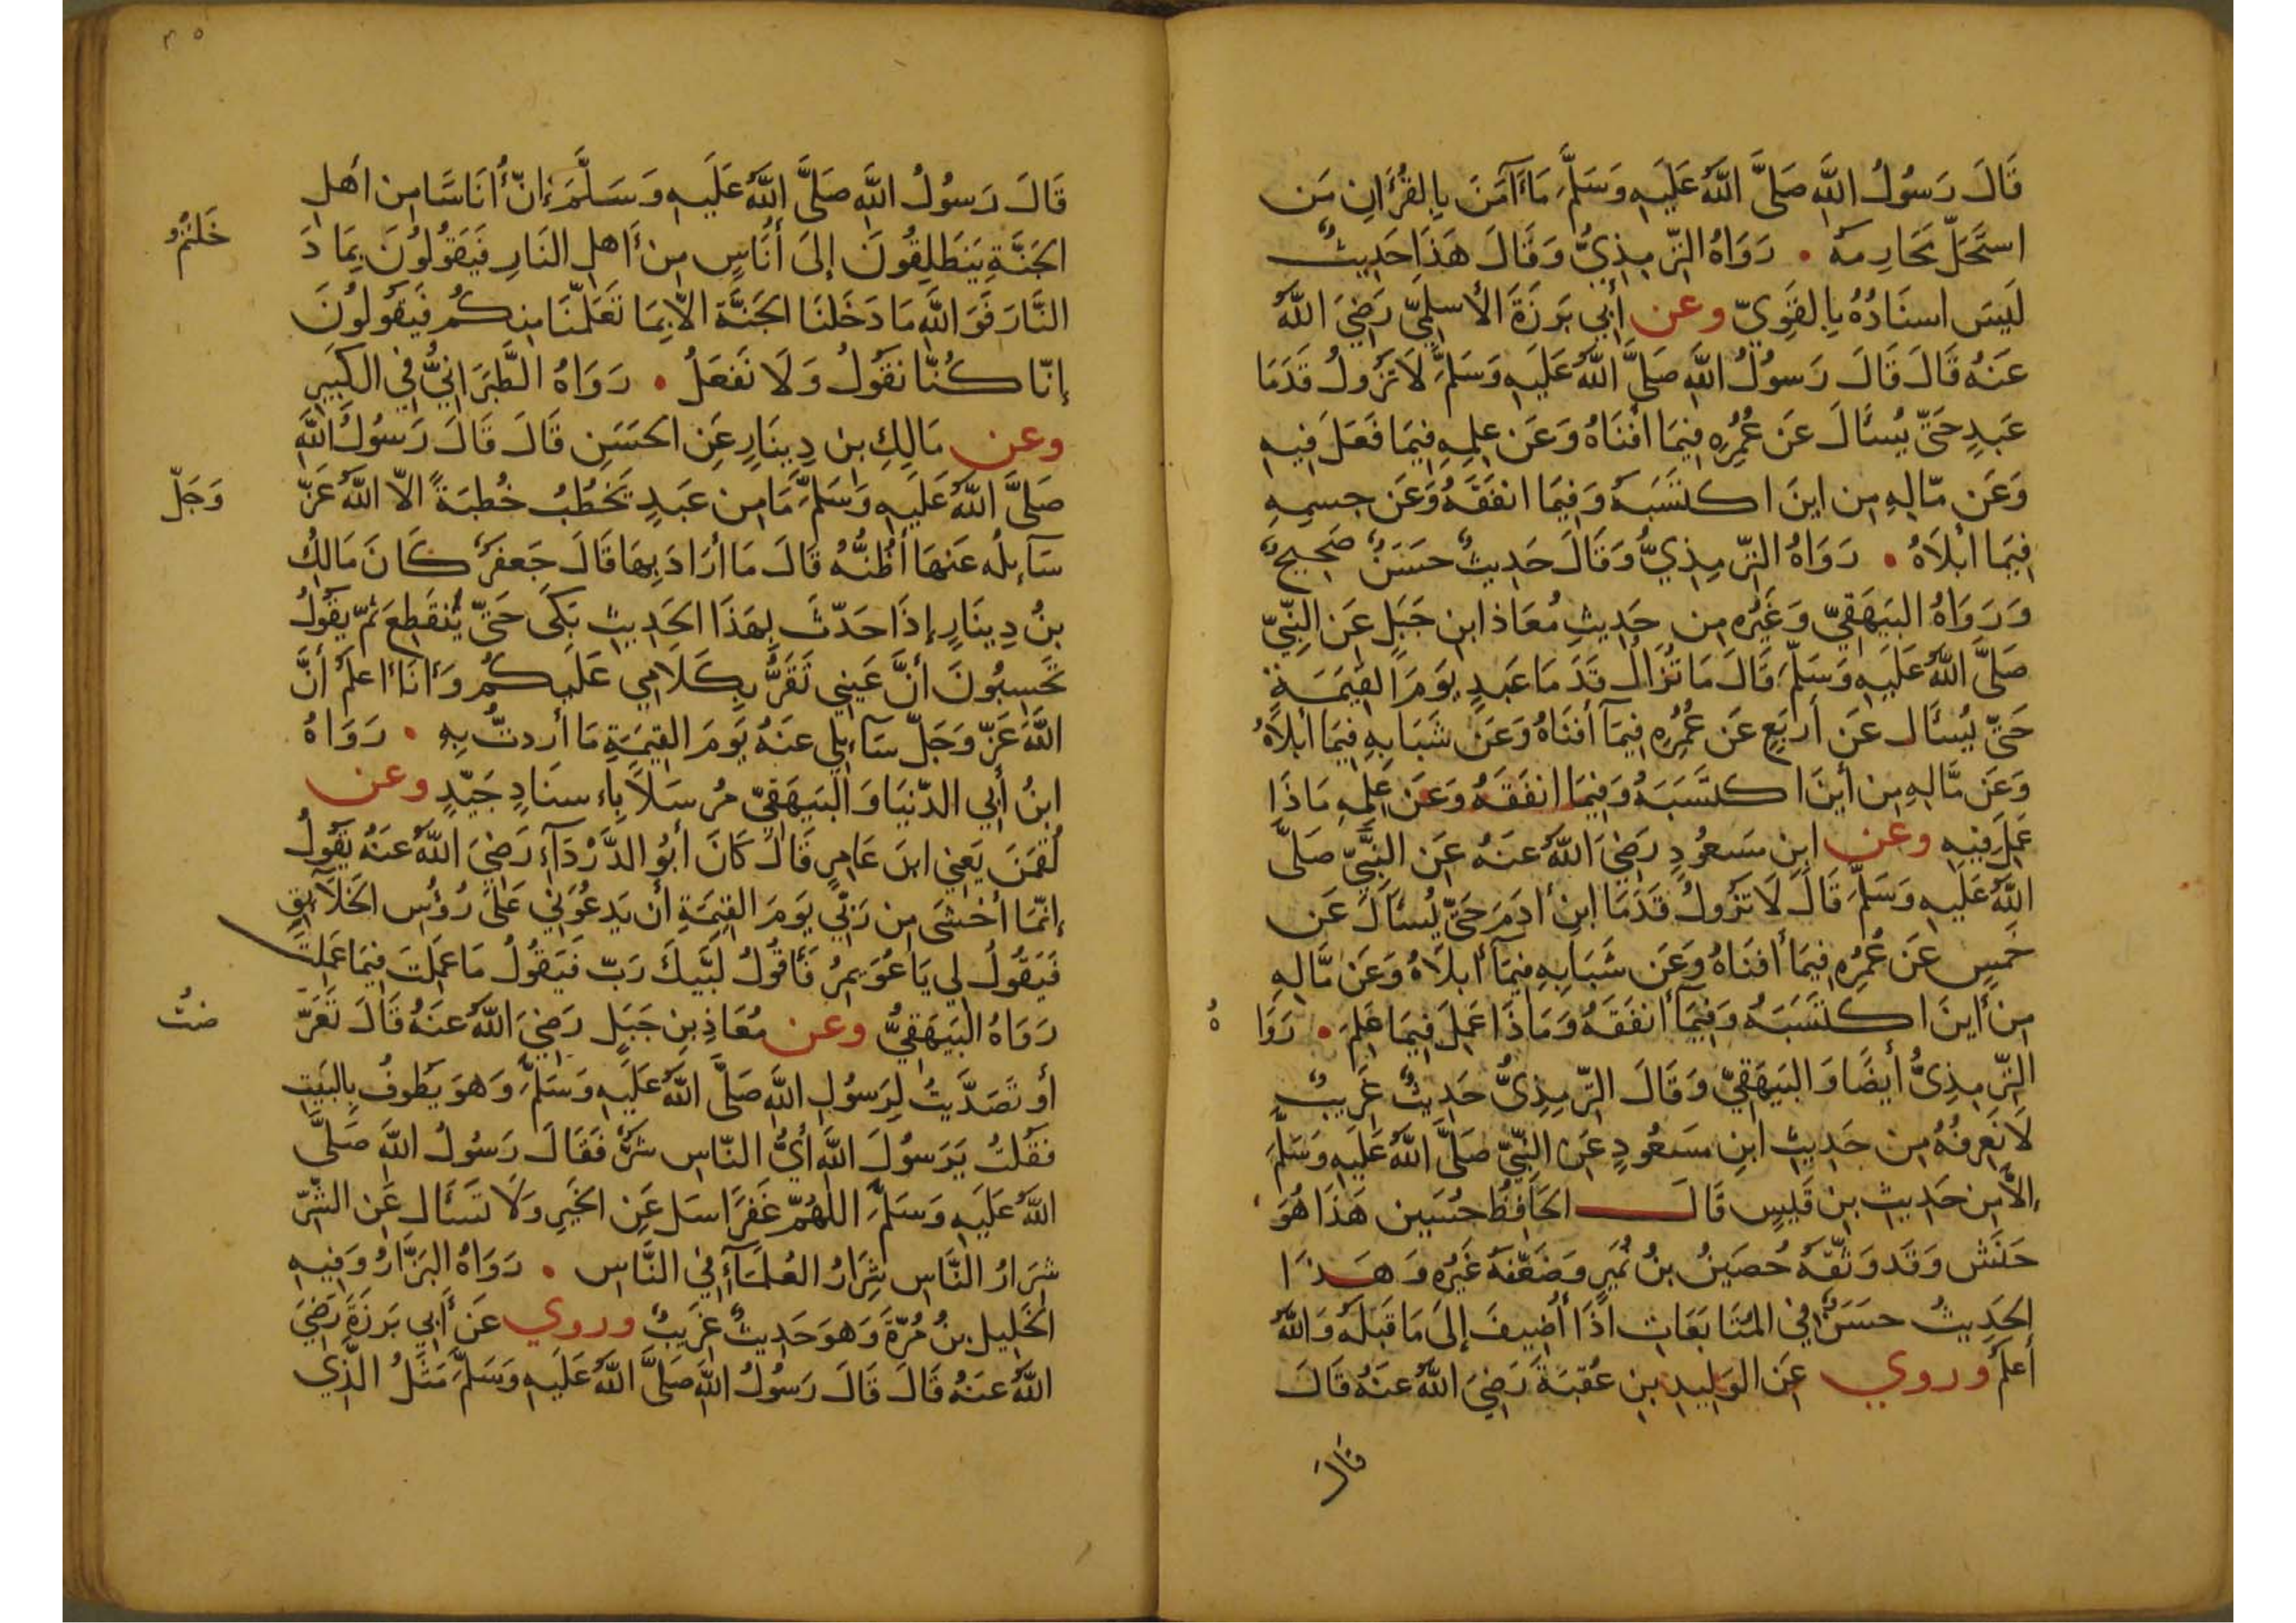 قَالَ رَسُولُ اللَّهِ صَلَّى اللَّهُ عَلَيهِ وَسَلَّمَ مَا آمَنَ بِالقُرْأَنِ مَن
استَحَلَّ مَحَارِمَهُ • رَوَاهُ التِّرمِذِيُّ وَقَالَ هَذَا حَدِيثٌ
لَيسَ اسنَادُهُ بِالقَوِيِّ وعن أَبِي بَرزَةَ الأَسلَمِيِّ رَضِيَ اللَّهُ
عَنهُ قَالَ قَالَ رَسُولُ اللَّهِ صَلَّى اللَّهُ عَلَيهِ وَسَلَّمَ لَا تَزُولُ قَدَمَا
عَبدٍ حَتَّى يُسأَلَ عَن عُمُرِهِ فِيمَا أَفنَاهُ وَعَن عِلمِهِ فِيمَا فَعَلَ فِيهِ
وَعَن مَّالِهِ مِن اينَ اكتَسَبَهُ وَفِيمَا انفَقَهُ وَعَن جِسمِهِ
فِيمَا أَبْلَاهُ • رَوَاهُ التِّرمِذِيُّ وَقَالَ حَدِيثٌ حَسَنٌ صَحِيحٌ
وَرَوَاهُ البَيهَقِيّ وَغَيرُه مِن حَدِيثِ مُعَاذ ابنِ جَبَلٍ عَنِ النَّبِيِّ
صَلَّى اللَّهُ عَلَيهِ وَسَلَّمَ قَالَ مَا تُزَالُ قَدَمَا عَبدٍ يَومَ القِيَمَةِ
حَتَّى يُسأَل عَن أَربَعٍ عَن عُمُرِهِ فِيمَآ أَفنَاهُ وَعَن شَبَابِهِ فِيمَا أَبْلَاهُ
وَعَن مَّالِهِ مِن أَينَ اكتَسَبَهُ وَفِيمَا انفَقَهُ وَعَن عِلمِهِ مَاذَا
عَمِلَ فِيهِ وعن ابنِ مَسعُودٍ رَضِيَ اللَّهُ عَنهُ عَنِ النَّبِيِّ صَلَّى
اللَّهُ عَلَيهِ وَسَلَّمَ قَالَ لَا تَزُولُ قَدَمَا ابنِ أدَمَ حَتَّى يُسأَلَ عَن
خَمسٍ عَن عُمُرِهِ فِيمَا أَفنَاهُ وَعَن شَبَابِهِ فِيمَآ أَبلَاهُ وَعَن مَّالِهِ
مِن أَينَ اكتَسَبَهُ وَفِيمَآ أَنفَقَهُ وَمَاذَا عَمِلَ فِيمَا عَلِمَ • رَوَا هُ
التِّرمِذِيُّ أَيضًا وَالبَيهَقِيّ وَقَالَ التِّرمِذِيُّ حَدِيثٌ غَرِيبٌ
لَا نَعرِفُهُ مِن حَدِيثِ ابنِ مَسعُودٍ عَنِ النَّبِيِّ صَلَّى اللَّهُ عَلَيهِ وَسَلَّمَ
إلاَّ مِن حَدِيثِ بنِ قَيسٍ قَالَ الحَافِظُ حُسَين هَذَا هُوَ
حَنَش وَقَد وَثَّقَهُ حُصَينُ بنُ نُمَيرٍ وَضَعَّفَهُ غَيرُه وَهَذَا
الحَدِيثُ حَسَنٌ فِي المُتَابَعَاتِ اذَا أُضِيفَ إِلَى مَا قَبلَهُ وَاللَّهُ
أَعلَمُ وروي عَن الوَلِيدِ بنِ عُقبَةَ رَضِيَ اللَّهُ عَنهُ قَالَ
قَالَ
٣٥
قَالَ رَسُولُ اللَّهِ صَلَّى اللَّهُ عَلَيهِ وَسَلَّمَ إِنَّ أُنَاسًا مِن أَهلِ
الجَنَّةِ يَنطَلِقُونَ إِلَى أُنَاسٍ مِن أَهلِ النَارِ فَيَقُولُونَ بِمَا دَ خَلتُم
النَّارَ فَوَ اللَّهِ مَا دَخَلنَا الجَنَّةَ الاَّ بِمَا تَعَلَّمنَا مِنكُم فَيَقُولُونَ
إِنَّا كُنَّا نَقُولُ وَلَا نَفعَلُ • رَوَاهُ الطَّبَرَانِيُّ فِي الكَبِيرِ
وعن مَالِكِ بنِ دِينَارٍ عَنِ الحَسَنِ قَالَ قَالَ رَسُولُ اللَّهِ
صَلَّى اللَّهُ عَلَيهِ وَسَلَّمَ مَا مِن عَبدٍ يَخطُبُ خُطبَةً الاَّ اللَّهُ عَزَّ وَجَلَّ
سَآئِلُه عَنهَا أَظُنُّهُ قَالَ مَا أَرَادَ بِهَا قَالَ جَعفَرٌ كَانَ مَالِكُ
بنُ دِينَارٍ إِذَا حَدَّثَ بِهَذَا الحَدِيثِ بَكَى حَتَّى يَنقَطِعَ ثُمَّ يَقُولُ
تَحسِبُونَ أَنَّ عَينِي تَقَرُّ بِكَلَامِي عَلَيكُم وَأَنَا أَعلَمُ أَنَّ
اللَّهَ عَزَّ وَجَلَّ سَآئِلِي عَنهُ يَومَ القِيَمَةِ مَا أَردتُّ بِهِ • رَوَاهُ
ابنُ أَبِي الدّنيَا وَالبَيهَقِيّ مُرسَلاً بِاسنَادٍ جَيّدٍ وعن
لُقمَنَ يَعنِي ابنَ عَامِرٍ قَالَ كَانَ أَبُو الدَّرْدَآءِ رَضِيَ اللَّهُ عَنهُ يَقُولُ
إِنَّمَا أَخشَى مِن رَبِّي يَومَ القِيَمَةِ أَن يَدعُوَنِي عَلَى رُؤُسِ الخَلَآئِقِ
فَيَقُولُ لِي يَا عُوَيمِرُ فَأَقُولُ لَبَّيكَ رَبّ فَيَقُولُ مَا عَمِلتَ فِيمَا عَلِمتَ
رَوَاهُ البَيهَقِيُّ وعن مُعَاذِ بنِ جَبَلٍ رَضِيَ اللَّهُ عَنهُ قَالَ تَعَرَّ ضتُ
أَو تَصَدَّيتُ لِرَسُولِ اللَّهِ صَلَّى اللَّهُ عَلَيهِ وَسَلَّمَ وَهوَ يَطُوفُ بِالبَيتِ
فَقُلتُ يَرَسُولَ اللَّهِ أَيُّ النَّاسِ شَرٌّ فَقَالَ رَسُولُ اللَّهِ صَلَّى
اللَّهُ عَلَيهِ وَسَلَّمَ اللهُمَّ غَفرًا سَل عَنِ الخَيرِ وَلَا تَسأَل عَنِ الشَّرِّ
شِرَارُ النَّاسِ شِرَارُ العُلَمَآءِ فِي النَّاسِ • رَوَاهُ البَزَّارُ وَفِيهِ
الخَلِيل بنُ مُرَّةَ وَهوَ حَدِيثٌ غَرِيبٌ وروي عَن أَبِي بَرزَةَ رَضِيَ
اللَّهُ عَنهُ قَالَ قَالَ رَسُولُ اللَّهِ صَلَّى اللَّهُ عَلَيهِ وَسَلَّمَ مَثَلُ الَّذِي